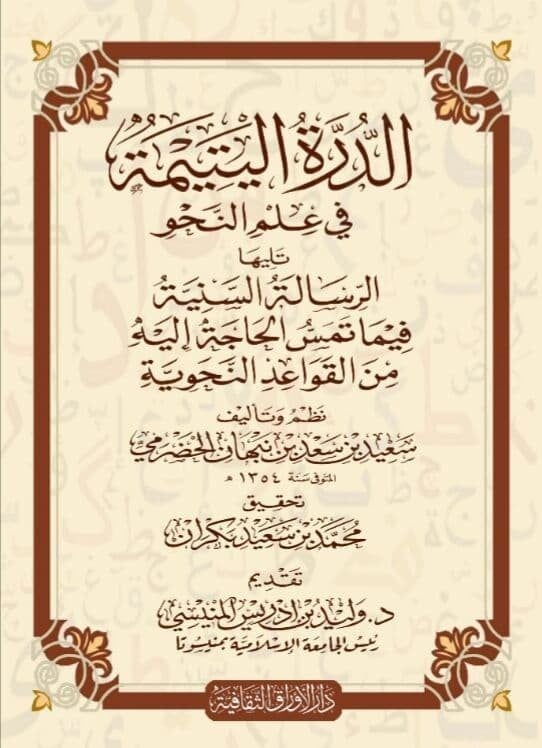 الدُّرَّةُ الْيَتِيمَةُ
فِي عِلْمِ النَّحْوِ
تَلِيهَا
الرِّسَالَةُ السَّنِيَّةُ
فِيمَا تَمَسُّ الْحَاجَةُ إِلَيْهِ
مِنَ الْقَوَاعِدِ النَّحْوِيَّةِ
نَظْمُ وَتَأْلِيفُ
سَعِيد بْن سَعْد بْن نَبْهَان الْحَضْرَمِي
المتوفى سَنَة ١٣٥٤ هـ
تحقيق
مُحَمَّد بْن سَعِيد بكران
تَقْدِيم
د. وَلِيد بْن إدْرِيس المنيسي
رئيس الجامعة الإسلامية بمنيسوتا
دار الأوراق الثقافية